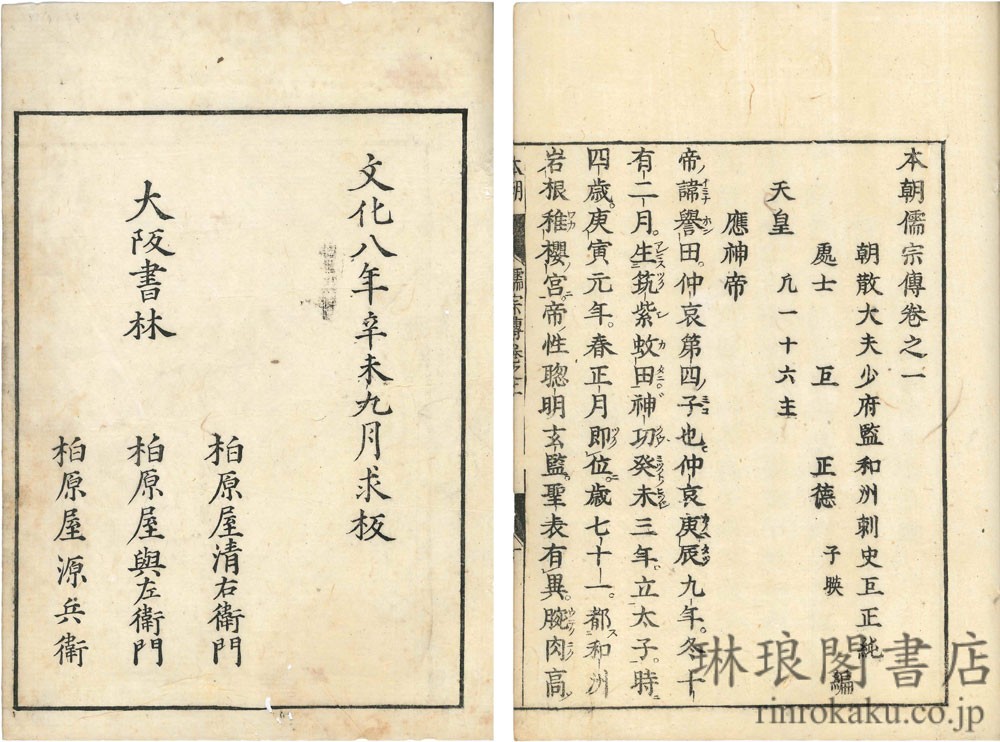 本朝儒宗傳卷之一
朝散大夫少府監和州刺史巨正純
處士 巨 正德 子映 編
天皇 凢一十六主
應神帝
帝諱譽田仲哀第四子也仲哀庚辰九年冬十
有二月生筑紫蚊田神功癸未三年立太子時
四歳庚寅元年春正月即位歳七十一都和洲
岩根稚櫻宮帝性聰明玄監聖表有異腕肉高
文化八年辛未九月求板
大阪書林
柏原屋清右衛門
柏原屋與左衛門
柏原屋源兵衛
琳琅閣書店
rinrokaku.co.jp